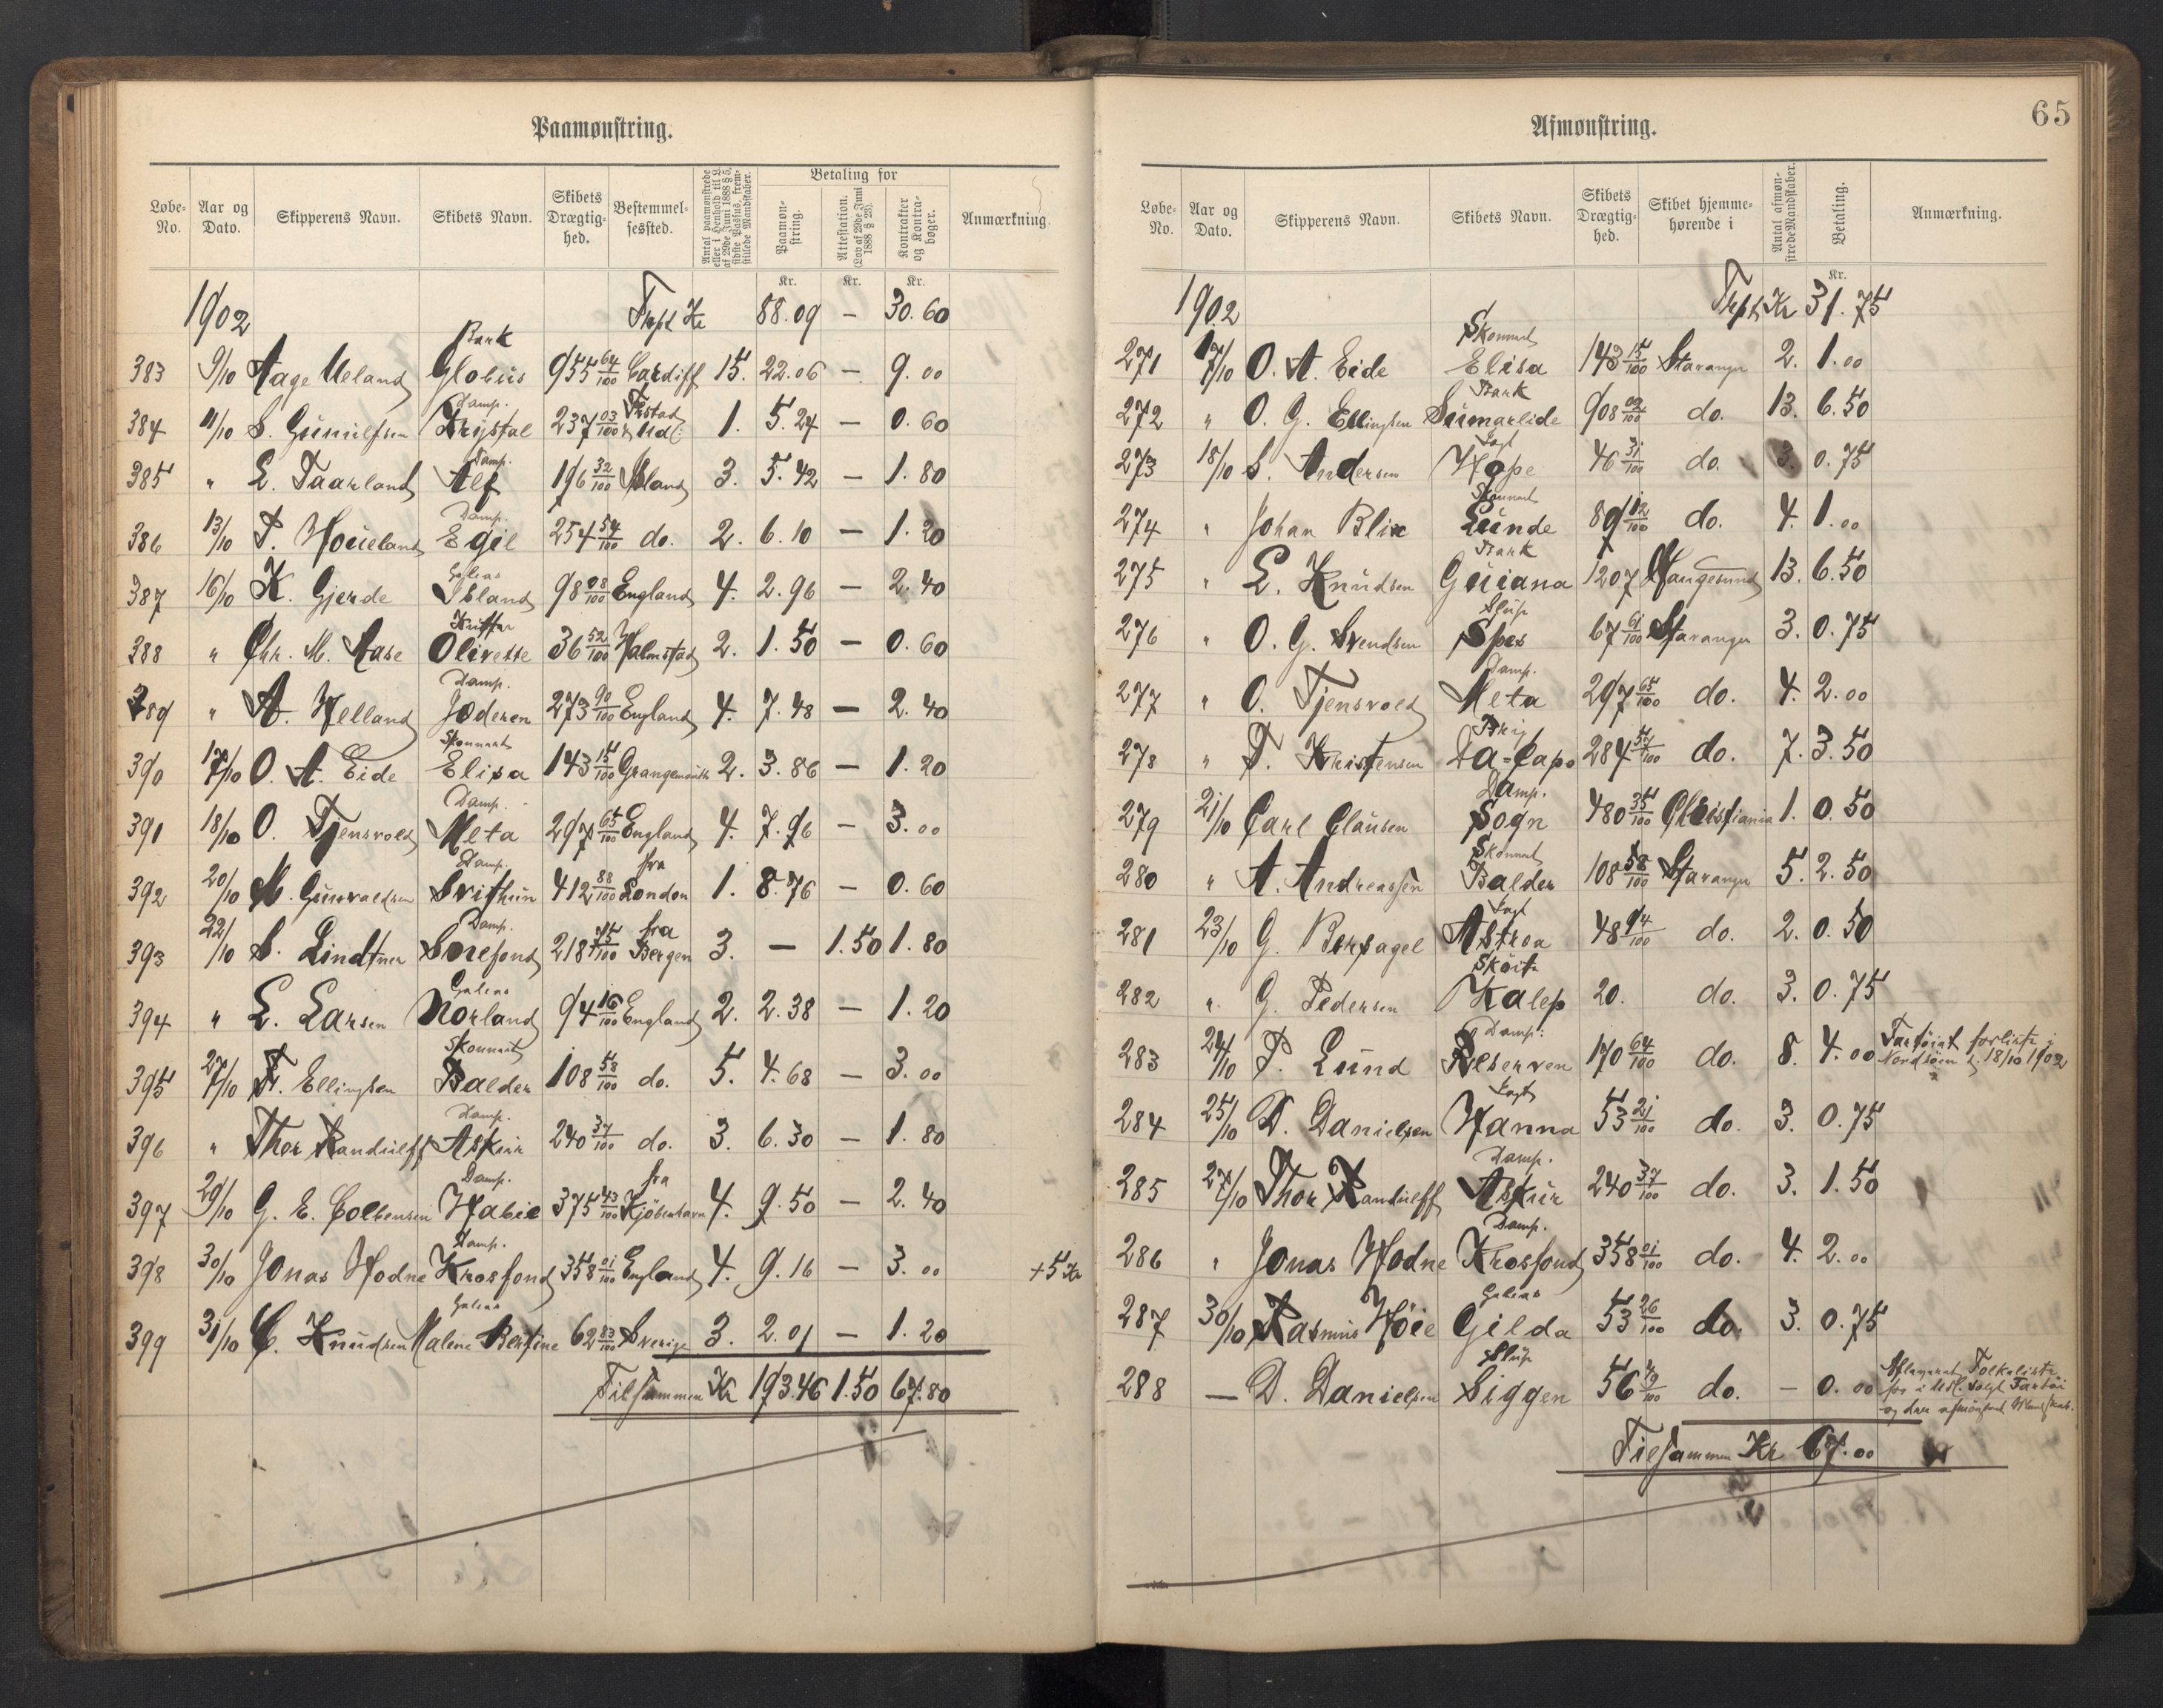 Paamønstring.
Løbe-No. Aar og Dato. Skipperens Navn. Skibets Navn. Skibets Drægtighed. Bestemmelsessted. Antal paamønstrede eller i Henhold til L. af 29de Juni 1888 § 5, sidste Passus, fremstillede Mandskaber. Betaling for Paamønstring. Attestation. (Lov af 29de Juni 1888 § 23). Kontrakter og Kontrabøger. Anmærkning.
Kr. Kr. Kr.
1902 Trspt Kr 88.09 — 30.60
383 9/10 Aage Ueland Bark Globus 955 64/100 Cardiff 15. 22.06 — 9.00
384 11/10 S. Gunulfsen Damp. Krystal 237 03/100 1. 5.24 — 0.60
385 " L. Taarland Damp. Alf 196 32/100 Island 3. 5.42 — 1.80
386 13/10 T. Houeland Damp. Egil 254 54/100 do. 2. 6.10 — 1.20
387 16/10 K. Gjerde Galeas Island 98 08/100 England 4. 2.96 — 2.40
388 " Chr. M. Aase Kutter Olivette 36 52/100 Halmstad 2. 1.50 — 0.60
389 " A. Helland Damp. Jæderen 273 90/100 England 4. 7.48 — 2.40
390 17/10 O. A. Eide Skonnert Elisa 143 15/100 Grangemouth 2. 3.86 — 1.20
391 18/10 O. Tjensvold Damp. Meta 297 65/100 England 4. 7.96 — 3.00
392 20/10 M. Gunvaldsen Damp. Svithun 412 88/100 fra London 1. 8.76 — 0.60
393 22/10 S. Lindtner Damp. Snefond 218 75/100 fra Bergen 3. — 1.50 1.80
394 " L. Larsen Galeas Norland 94 16/100 England 2. 2.38 — 1.20
395 27/10 Fr. Ellingsen Skonnert Balder 108 58/100 do. 5. 4.68 — 3.00
396 " Thor Randulff Damp. Askur 240 37/100 do. 3. 6.30 — 1.80
397 29/10 G. E. Colbensen Damp. Habil 375 43/100 fra Kjöbenhavn 4. 9.50 — 2.40
398 30/10 Jonas Hodne Damp. Krosfond 358 01/100 England 4. 9.16 — 3.00 +5 Kr
399 31/10 C. Knudsen Galeas Malene Bertine 62 83/100 Sverige 3. 2.01 — 1.20
Tilsammen Kr 193.46 1.50 67.80
65
Afmønstring.
Løbe-No. Aar og Dato. Skipperens Navn. Skibets Navn. Skibets Drægtighed. Skibet hjemmehørende i Antal afmønstrede Mandskaber. Betaling. Anmærkning.
Kr.
1902 Trspt Kr 31.75
271 17/10 O. A. Eide Skonnert Elisa 143 15/100 Stavanger 2. 1.00
272 " O. G. Ellingsen Bark Sumarlide 908 02/100 do. 13. 6.50
273 18/10 S. Andersen Jagt Hope 46 31/100 do. 3. 0.75
274 " Johan Blix Skonnert Lunde 89 12/100 do. 4. 1.00
275 " L. Knudsen Bark Guiana 1207 Haugesund 13. 6.50
276 " O. G. Svendsen Slup Spes 67 61/100 Stavanger 3. 0.75
277 " O. Tjensvold Damp. Meta 297 65/100 do. 4. 2.00
278 " T. Kristensen Brig Da=Capo 284 54/100 do. 7. 3.50
279 21/10 Carl Clausen Damp. Sogn 480 35/100 Christiania 1. 0.50
280 " A. Andreassen Skonnert Balder 108 58/100 Stavanger 5. 2.50
281 23/10 G. Borsagel Jagt Astrea 48 94/100 do. 2. 0.50
282 " G. Pedersen Sköite Kalep 20. do. 3. 0.75
283 24/10 T. Lund Damp. Reserven 170 64/100 do. 8. 4.00 Fartöiet forliste i Nordsöen d. 18/10 1902
284 25/10 D. Danielsen Jagt Hanna 53 21/100 do. 3. 0.75
285 27/10 Thor Randulff Damp. Askur 240 37/100 do. 3. 1.50
286 " Jonas Hodne Damp. Krosfond 358 01/100 do. 4. 2.00
287 30/10 Rasmus Höie Galeas Gilda 53 26/100 do. 3. 0.75
288 — D. Danielsen Slup Siggen 56 49/100 do. — 0.00 Afleveret Folkeliste for i Udl. solgt Fartöi og der afmönstret Mandskab.
Tilsammen Kr 67.00